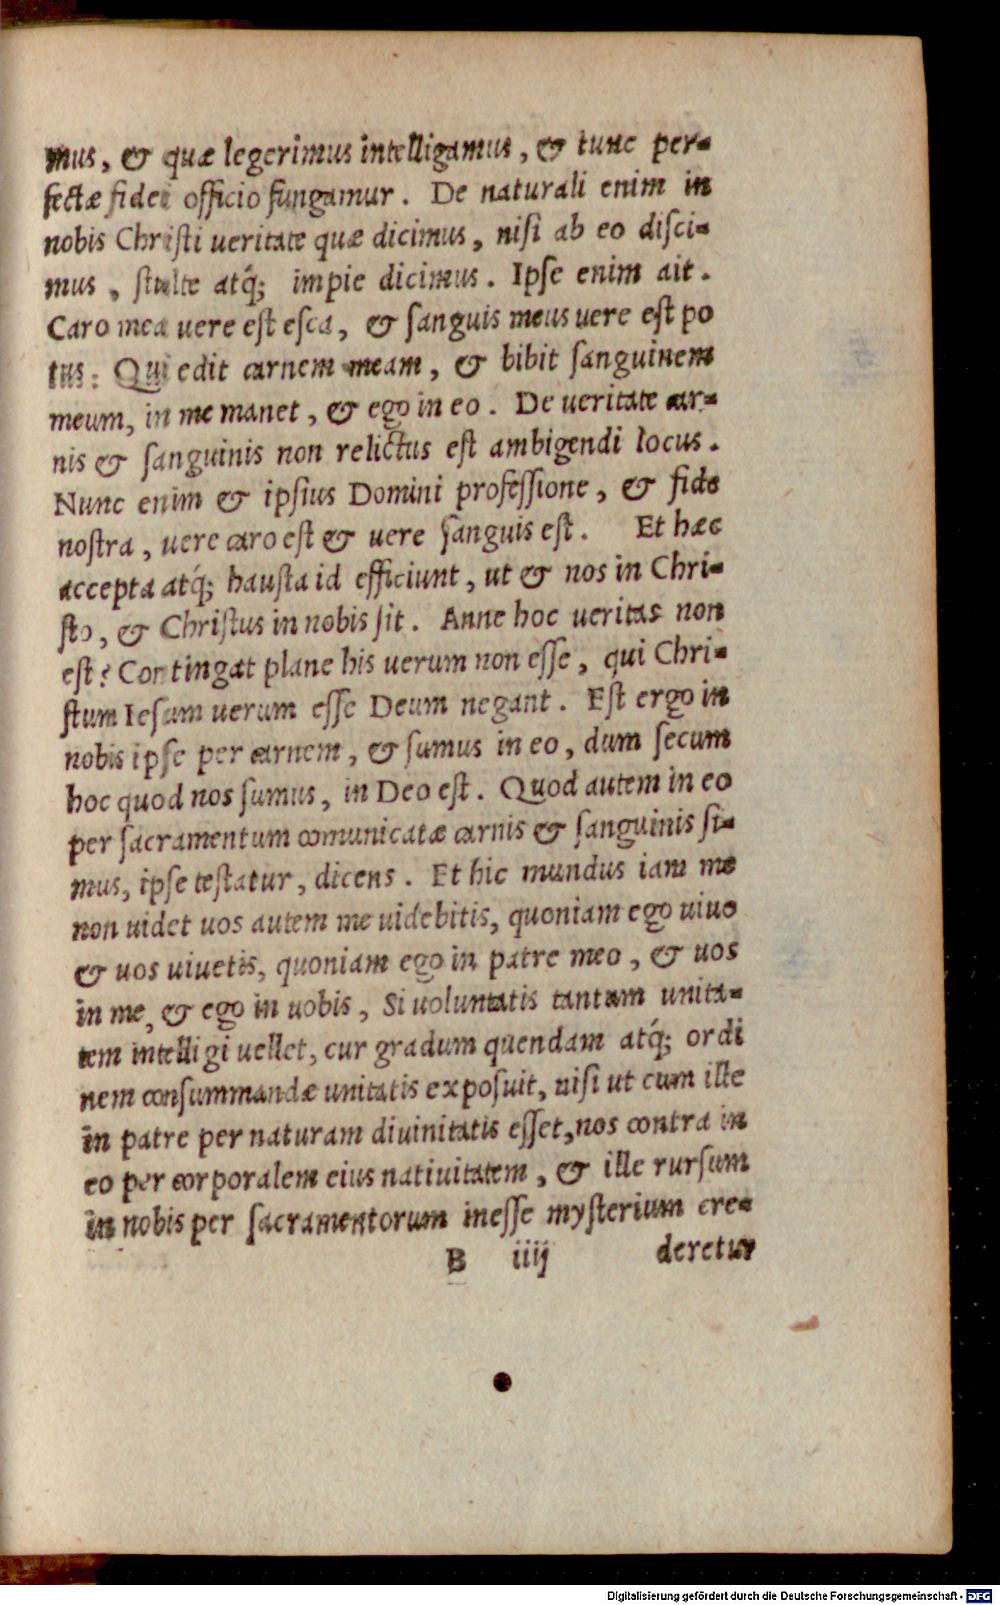 mus, & quæ legerimus intelligamus, & tunc per-
fectæ fidei officio fungamur. De naturali enim in
nobis Christi ueritate quæ dicimus, nisi ab eo disci-
mus, stulte atq́; impie dicimus. Ipse enim ait.
Caro mea uere est esca, & sanguis meus uere est po
tus: Qui edit carnem meam, & bibit sanguinem
meum, in me manet, & ego in eo. De ueritate car-
nis & sanguinis non relictus est ambigendi locus.
Nunc enim & ipsius Domini professione, & fide
nostra, uere caro est & uere sanguis est. Et hæc
accepta atq́; hausta id efficiunt, ut & nos in Chri-
sto, & Christus in nobis sit. Anne hoc ueritas non
est? Contingat plane his uerum non esse, qui Chri-
stum Iesum uerum esse Deum negant. Est ergo in
nobis ipse per carnem, & sumus in eo, dum secum
hoc quod nos sumus, in Deo est. Quod autem in eo
per sacramentum comunicatæ carnis & sanguinis si-
mus, ipse testatur, dicens. Et hic mundus iam me
non uidet uos autem me uidebitis, quoniam ego uiuo
& uos uiuetis, quoniam ego in patre meo, & uos
in me, & ego in uobis, Si uoluntatis tantum unita-
tem intelligi uellet, cur gradum quendam atq́; ordi
nem consummandæ unitatis exposuit, nisi ut cum ille
in patre per naturam diuinitatis esset, nos contra in
eo per corporalem eius natiuitatem, & ille rursum
in nobis per sacramentorum inesse mysterium cre-
B iiij deretur
Digitalisierung gefördert durch die Deutsche Forschungsgemeinschaft - DFG